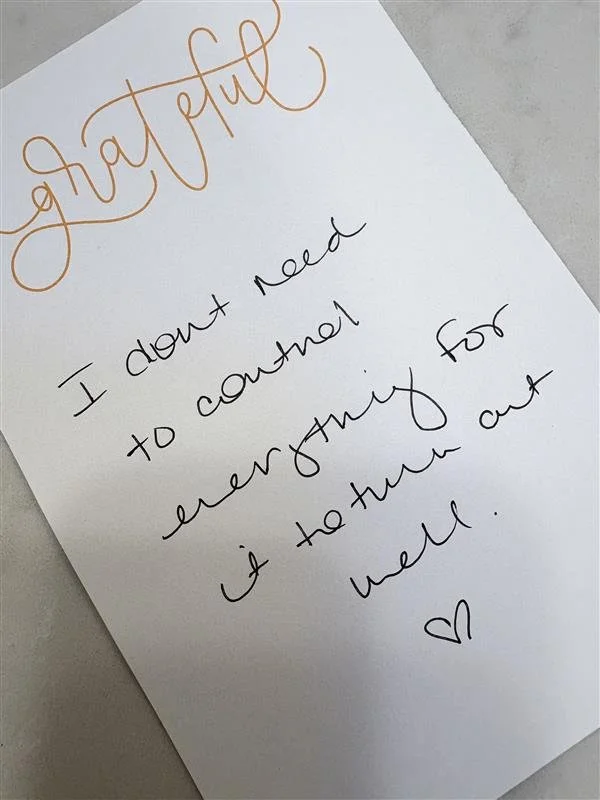 grateful
I dont need
to control
everything for
it to turn out
well.